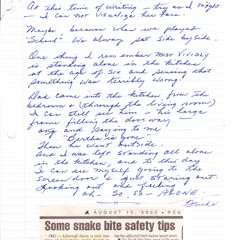 At this time of writing - try as I might
- I can not visualize her face.
Maybe because when we played
"School" we always sat side by side.
One thing I remember most vividly
is standing alone in the kitchen
at the age of six and sensing that
something was terribly wrong!
Dad came into the kitchen, from the
bedroom & (through the living room)
I can still see him - his large
frame filling the doorway -
and saying to me
"Bertha is gone"
Then he went outside.
And I was left standing all alone
in the kitchen, and to this day
I can see myself going to the
screen door & just staring out.
Looking out and feeling
oh - so - so - ALONE.
AUGUST 11, 2005 • REG
Some snake bite safety tips